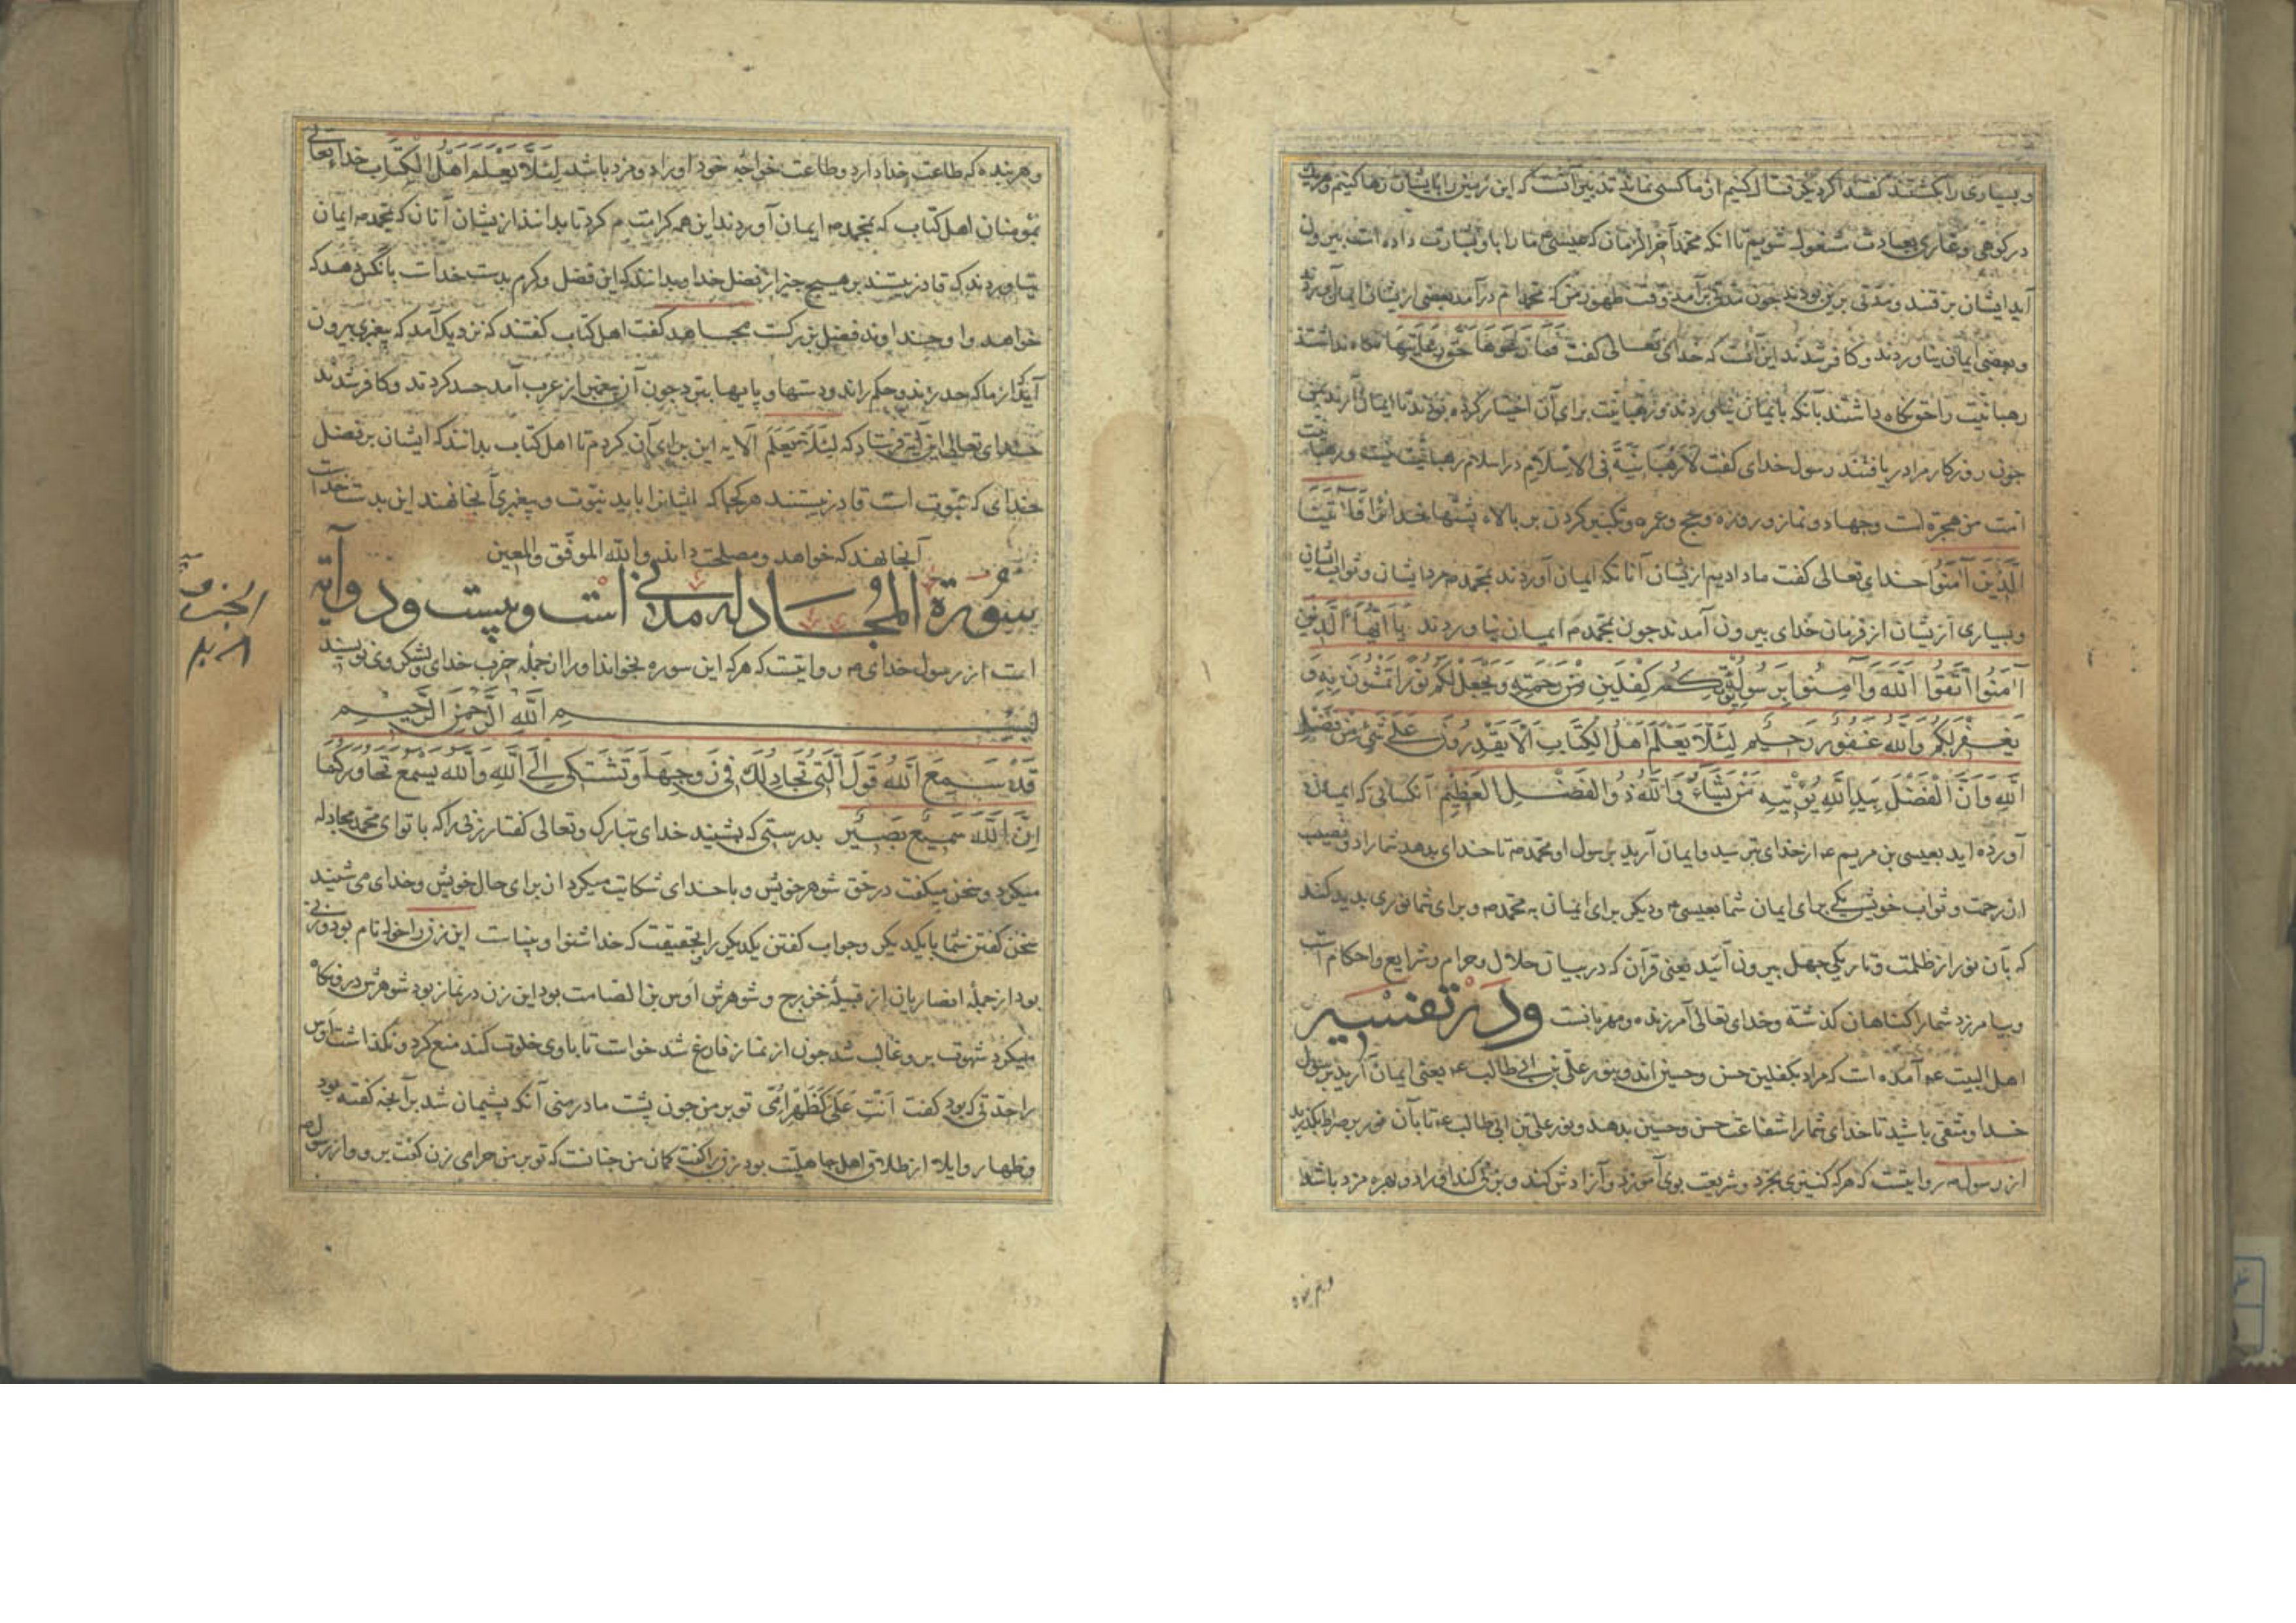 و بسیاری را بکشتند گفتند اگر دیگر قتال کنیم از ما کسی نماند تدبیر آنست که این زمین را بایشان رها کنیم و هریک
در کوهی و غاری بعبادت مشغول شویم تا انکه محمد آخر الزمان که عیسی م ما را باو بشارت داده است بیرون
آید ایشان برفتند و مدتی برین بودند چون مدتی برآمد وقت ظهور من که محمدم درآمد بعضی ازیشان ایمان آوردند
و بعضی ایمان نیاوردند و کافر شدند این آنست که خدای تعالی گفت فما رعوها حق رعایتها نگاه نداشتند
رهبانیت را حق نگاه داشتند بآنکه بایمان نیاوردند و رهبانیت برای آن اختیار کرده بودند تا ایمان آرند بمن
چون روزکار مرا دریافتند رسول خدای گفت لا رهبانیة فی الاسلام در اسلام رهبانیت نیست و رهبانیت
امت من هجرة است و جهاد و نماز و روزه و حج و عمره و تکبیر کردن بر بالاء پشتها بخدای فآتینا
الذین آمنوا خدای تعالی گفت ما دادیم ازیشان آنانکه ایمان آوردند بمحمدم مزد ایشان و ثواب ایشان
و بسیاری ازیشان از فرمان خدای بیرون آمدند چون بمحمدم ایمان نیاوردند یا ایها الذین
آمنوا اتقوا الله وآمنوا برسوله یؤتکم کفلین من رحمته ویجعل لکم نورا تمشون به و
یغفر لکم والله غفور رحیم لئلا یعلم اهل الکتاب الا یقدرون علی شیء من فضل
الله وان الفضل بید الله یؤتیه من یشاء والله ذو الفضل العظیم آنکسانی که ایمان
آورده اید بعیسی بن مریم عم از خدای بترسید و ایمان آرید برسول او محمدم تا خدای بدهد شما را دو نصیب
از رحمت و ثواب خویش یکی برای ایمان شما بعیسی م و دیگر برای ایمان به محمدم و برای شما نوری بدید کند
که بآن نور از ظلمت و تاریکی جهل بیرون آئید یعنی قرآن که در بیان حلال و حرام و شرایع و احکام است
و بیامرزد شما را کناهان کذشته و خدای تعالی آمرزنده و مهربانست و در تفسیر
اهل البیت عم آمده است که مراد بکفلین حسن و حسین اند و بنور علی بن ابی طالب عم یعنی ایمان آرید برسول
خدا و متقی باشید تا خدای شما را شفاعت حسن و حسین بدهد و نور علی بن ابی طالب عم تا بآن نور بر صراط بکذرید
از رسول م روایتست که هرکه کنیزی بخرد و شریعت بوی آموزد و آزادش کند و بزنی کند او را دو بهره مزد باشد
و هر بنده که طاعت خدا دارد و طاعت خواجه خود او را دو مزد باشد لئلا یعلم اهل الکتاب خدای تعالی
بمومنان اهل کتاب که بمحمدم ایمان آوردند این همه کرامت م کرد تا بدانند ازیشان آنان که بمحمدم ایمان
نیاوردند که قادر نیستند بر هیچ چیز از فضل خدا و بدانند که این فضل و کرم بدست خداست بآنکس دهد که
خواهد و او خداوند فضل بزرکست مجاهد گفت اهل کتاب گفتند که نزدیک آمد که پیغمبری بیرون
آید از ما که حد زند و حکم راند و دستها و پایها ببرد چون آن پیغمبر از عرب آمد حسد کردند و کافر شدند
خدای تعالی این آیه فرستاد که لئلا یعلم الایه این برای آن کردم تا اهل کتاب بدانند که ایشان بر فضل
خدای که نبوت است قادر نیستند هرکجا که ایشانرا باید نبوت و پیغمبری آنجا نهند این بدست خداست
آنجا نهد که خواهد و مصلحت داند والله الموفق والمعین
سورة المجادله مدنی است و بیست و دو آیه
است از رسول خدای م روایتست که هرکه این سوره بخواند او را از جمله حزب خدای و لشکر وی نویسند
بسم الله الرحمن الرحیم
قد سمع الله قول التی تجادلک فی زوجها وتشتکی الی الله والله یسمع تحاورکما
ان الله سمیع بصیر بدرستی که بشنید خدای تبارک و تعالی گفتار زنی را که با تو ای محمد مجادله
میکرد و سخن میکفت در حق شوهر خویش و با خدای شکایت میکرد از برای حال خویش و خدای می شنید
سخن گفتن شما با یکدیگر و جواب گفتن یکدیگر را بحقیقت که خدا شنوا و بیناست این زن را خوله نام بود و زنی
بود از جمله انصاریان از قبیله خزرج و شوهرش اوس بن الصامت بود این زن در نماز بود شوهرش درو نگاه
میکرد شهوت برو غالب شد چون از نماز فارغ شد خواست تا با وی خلوت کند منع کرد و نگذاشت اوس
را حدتی که بود گفت انت علی کظهر امی تو بر من چون پشت مادر منی آنکه پشیمان شد بر آنچه گفته بود
و ظهار و ایلا از طلاق اهل جاهلیت بود زن را گفت گمان من چنانست که تو بر من حرامی زن گفت برو و از رسول م